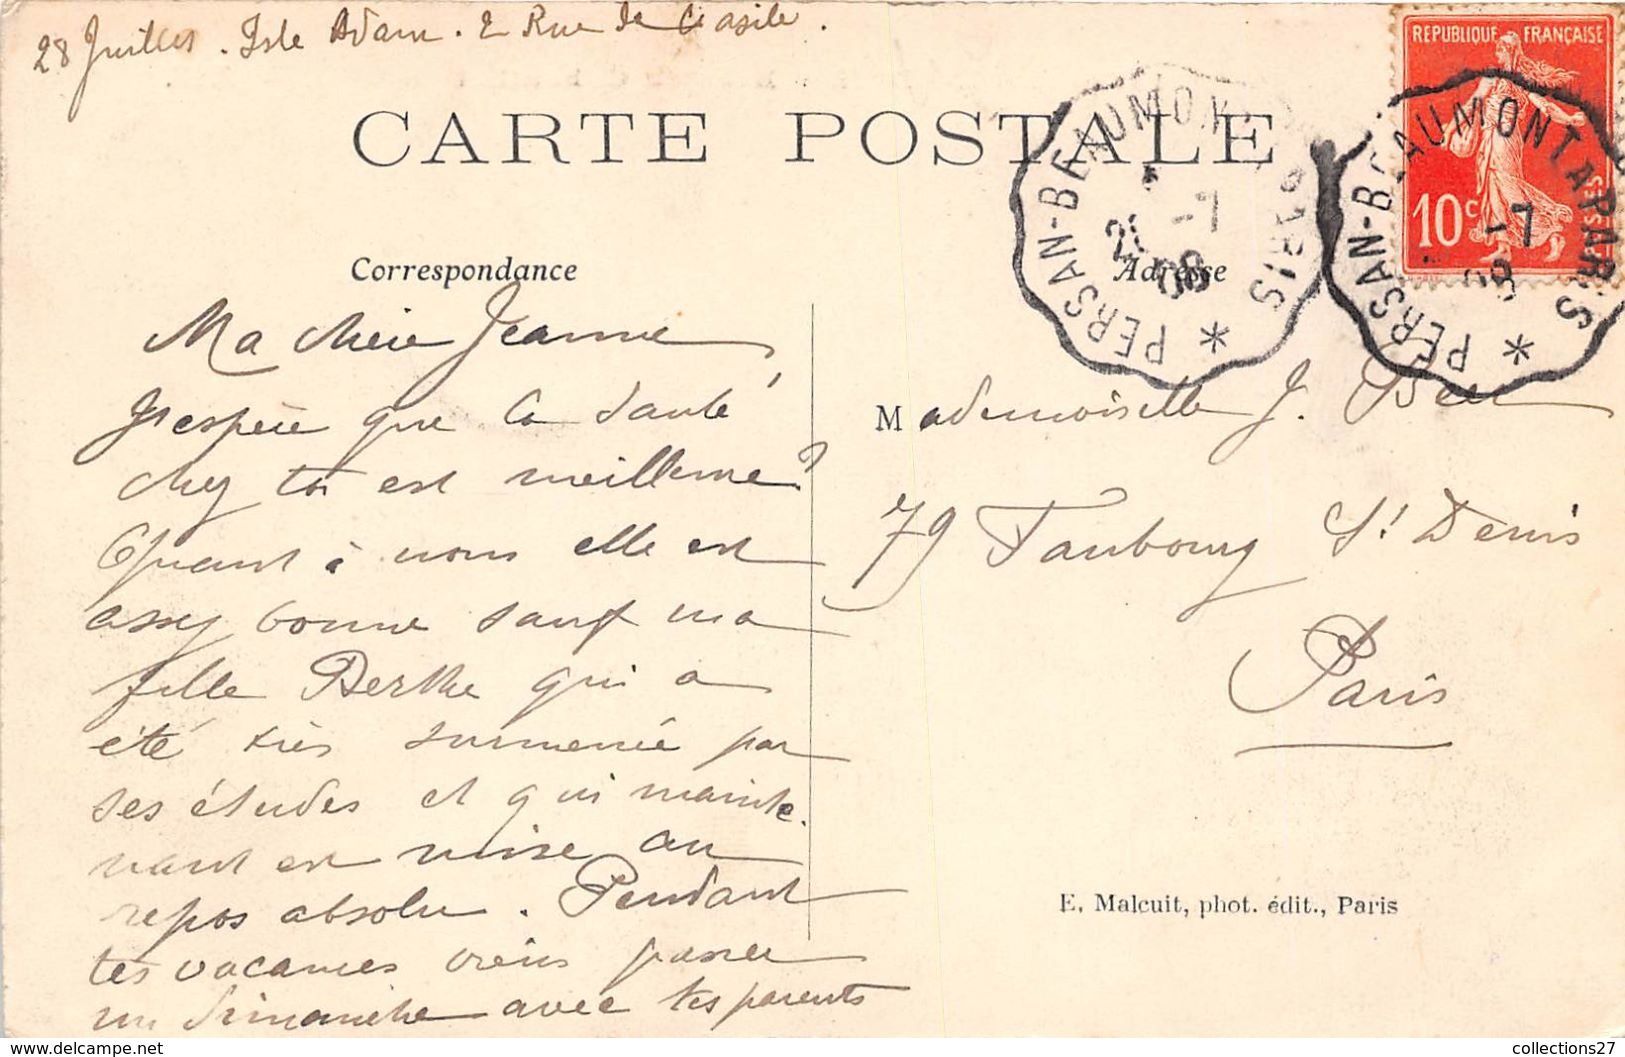 28 Juillet. Isle Adam. 2 Rue de
CARTE POSTALE
REPUBLIQUE FRANÇAISE
10c
POSTES
PERSAN-BEAUMONT A PARIS *
28 -7 08
PERSAN-BEAUMONT A PARIS *
-7 08
Correspondance
Adresse
Ma chère Jeanne
J'espère que la santé
chez toi est meilleure?
Quant à nous elle est
assez bonne sauf ma
fille Berthe qui a
été très surmenée par
ses études et qui mainte-
nant est mise au
repos absolu. Pendant
tes vacances viens passer
un dimanche avec tes parents
Mademoiselle J.
79 Faubourg St Denis
Paris
E. Malcuit, phot. édit., Paris
collections27